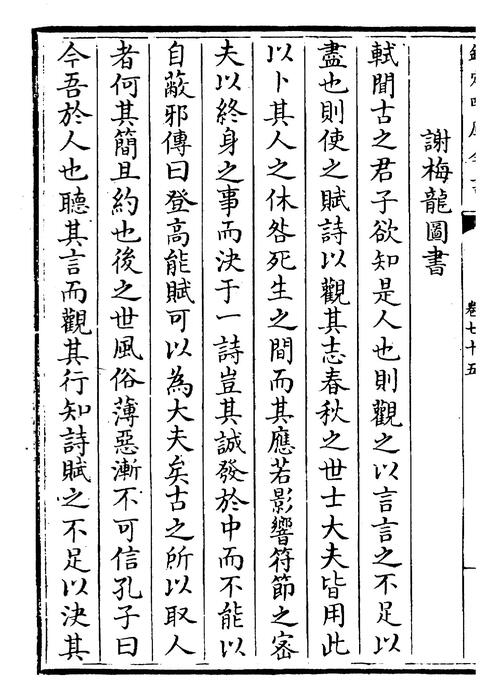 謝梅龍圖書
軾聞古之君子欲知是人也則觀之以言言之不足以
盡也則使之賦詩以觀其志春秋之世士大夫皆用此
以卜其人之休咎死生之間而其應若影響符節之密
夫以終身之事而決于一詩豈其誠發於中而不能以
自蔽邪傳曰登高能賦可以為大夫矣古之所以取人
者何其簡且約也後之世風俗薄惡漸不可信孔子曰
今吾於人也聽其言而觀其行知詩賦之不足以決其
卷七十五